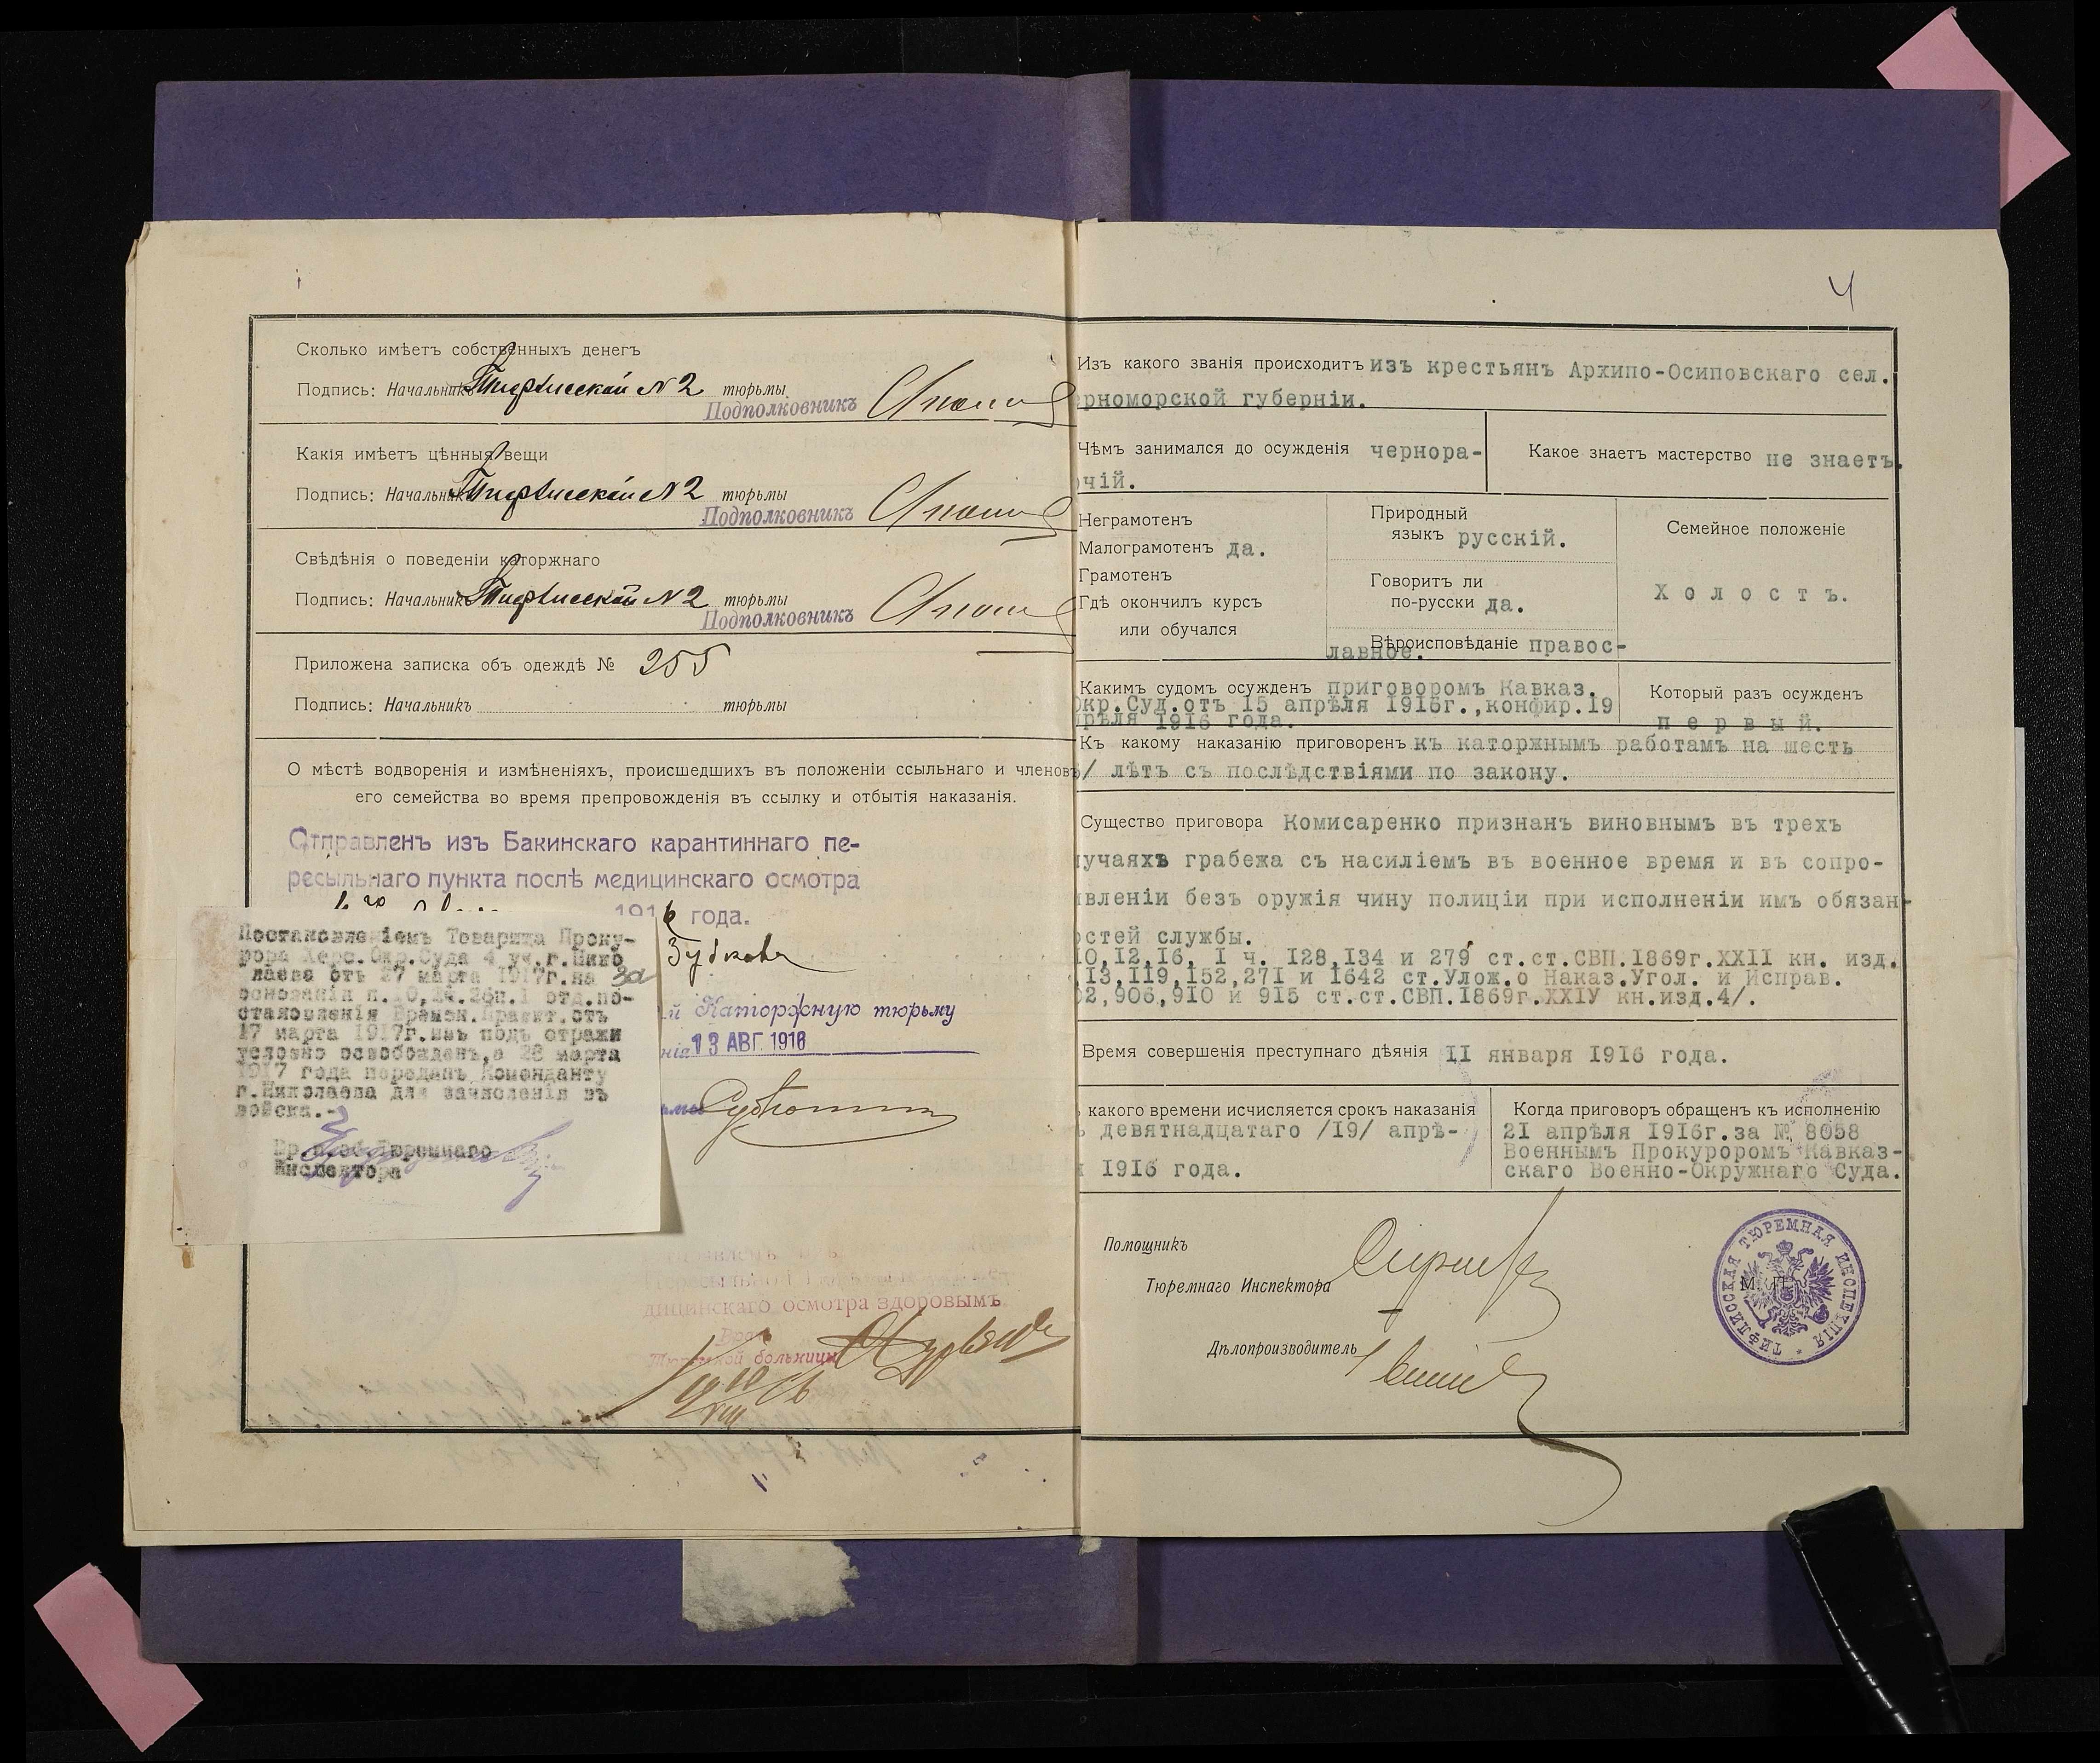 Сколько имѣетъ собственныхъ денегъ
Подпись: Начальникъ Тифлисской № 2 тюрьмы
Подполковникъ
Какія имѣетъ цѣнныя вещи
Подпись: Начальникъ Тифлисской № 2 тюрьмы
Подполковникъ
Свѣдѣнія о поведеніи каторжнаго
Подпись: Начальникъ Тифлисской № 2 тюрьмы
Подполковникъ
Приложена записка объ одеждѣ № 255
Подпись: Начальникъ тюрьмы
О мѣстѣ водворенія и измѣненіяхъ, происшедшихъ въ положеніи ссыльнаго и членовъ
его семейства во время препровожденія въ ссылку и отбытія наказанія.
Отправленъ изъ Бакинскаго карантиннаго пе-
ресыльнаго пункта послѣ медицинскаго осмотра
1916 года.
Постановленіемъ Товарища Проку-
рора Херс.Окр.Суда 4 уч.г.Нико
лаева отъ 27 марта 1917г.на
основаніи п. отд.по-
становленія Времен.Правит.отъ
17 марта 1917г.изъ подъ стражи
условно освобожденъ,а 28 марта
1917 года переданъ Коменданту
г.Николаева для зачисленія въ
войска.-
Тюремнаго
Инспектора
Каторжную тюрьму
13 АВГ 1916
дицинскаго осмотра здоровымъ
Врачъ
Тюремной больницы
4
Изъ какого званія происходитъ изъ крестьянъ Архипо-Осиповскаго сел.
рноморской губерніи.
Чѣмъ занимался до осужденія чернора-
чій.
Какое знаетъ мастерство не знаетъ.
Неграмотенъ
Малограмотенъ да.
Грамотенъ
Гдѣ окончилъ курсъ
или обучался
Природный
языкъ русскій.
Говоритъ ли
по-русски да.
Вѣроисповѣданіе правос-
лавное.
Семейное положеніе
Х о л о с т ъ.
Какимъ судомъ осужденъ приговоромъ Кавказ.
Окр.Суд.отъ 15 апрѣля 1916г.,конфир.19
прѣля 1916 года.
Который разъ осужденъ
п е р в ы й.
Къ какому наказанію приговоренъ къ каторжнымъ работамъ на шесть
/ лѣтъ съ послѣдствіями по закону.
Существо приговора Комисаренко признанъ виновнымъ въ трехъ
учаяхъ грабежа съ насиліемъ въ военное время и въ сопро-
вленіи безъ оружія чину полиціи при исполненіи имъ обязан-
остей службы.
10,12,16, I ч. 128,134 и 279 ст.ст.СВП.1869г.XXII кн. изд.
13,119,152,271 и 1642 ст.Улож.о Наказ.Угол. и Исправ.
2,906,910 и 915 ст.ст.СВП.1869г.XXIУ кн.изд.4/.
Время совершенія преступнаго дѣянія II января 1916 года.
какого времени исчисляется срокъ наказанія
девятнадцатаго /19/ апрѣ-
1916 года.
Когда приговоръ обращенъ къ исполненію
21 апрѣля 1916г.за № 8058
Военнымъ Прокуроромъ Кавказ-
скаго Военно-Окружнаго Суда.
Помощникъ
Тюремнаго Инспектора
Дѣлопроизводитель
ТИФЛИССКАЯ ТЮРЕМНАЯ ИНСПЕКЦІЯ
М. П.